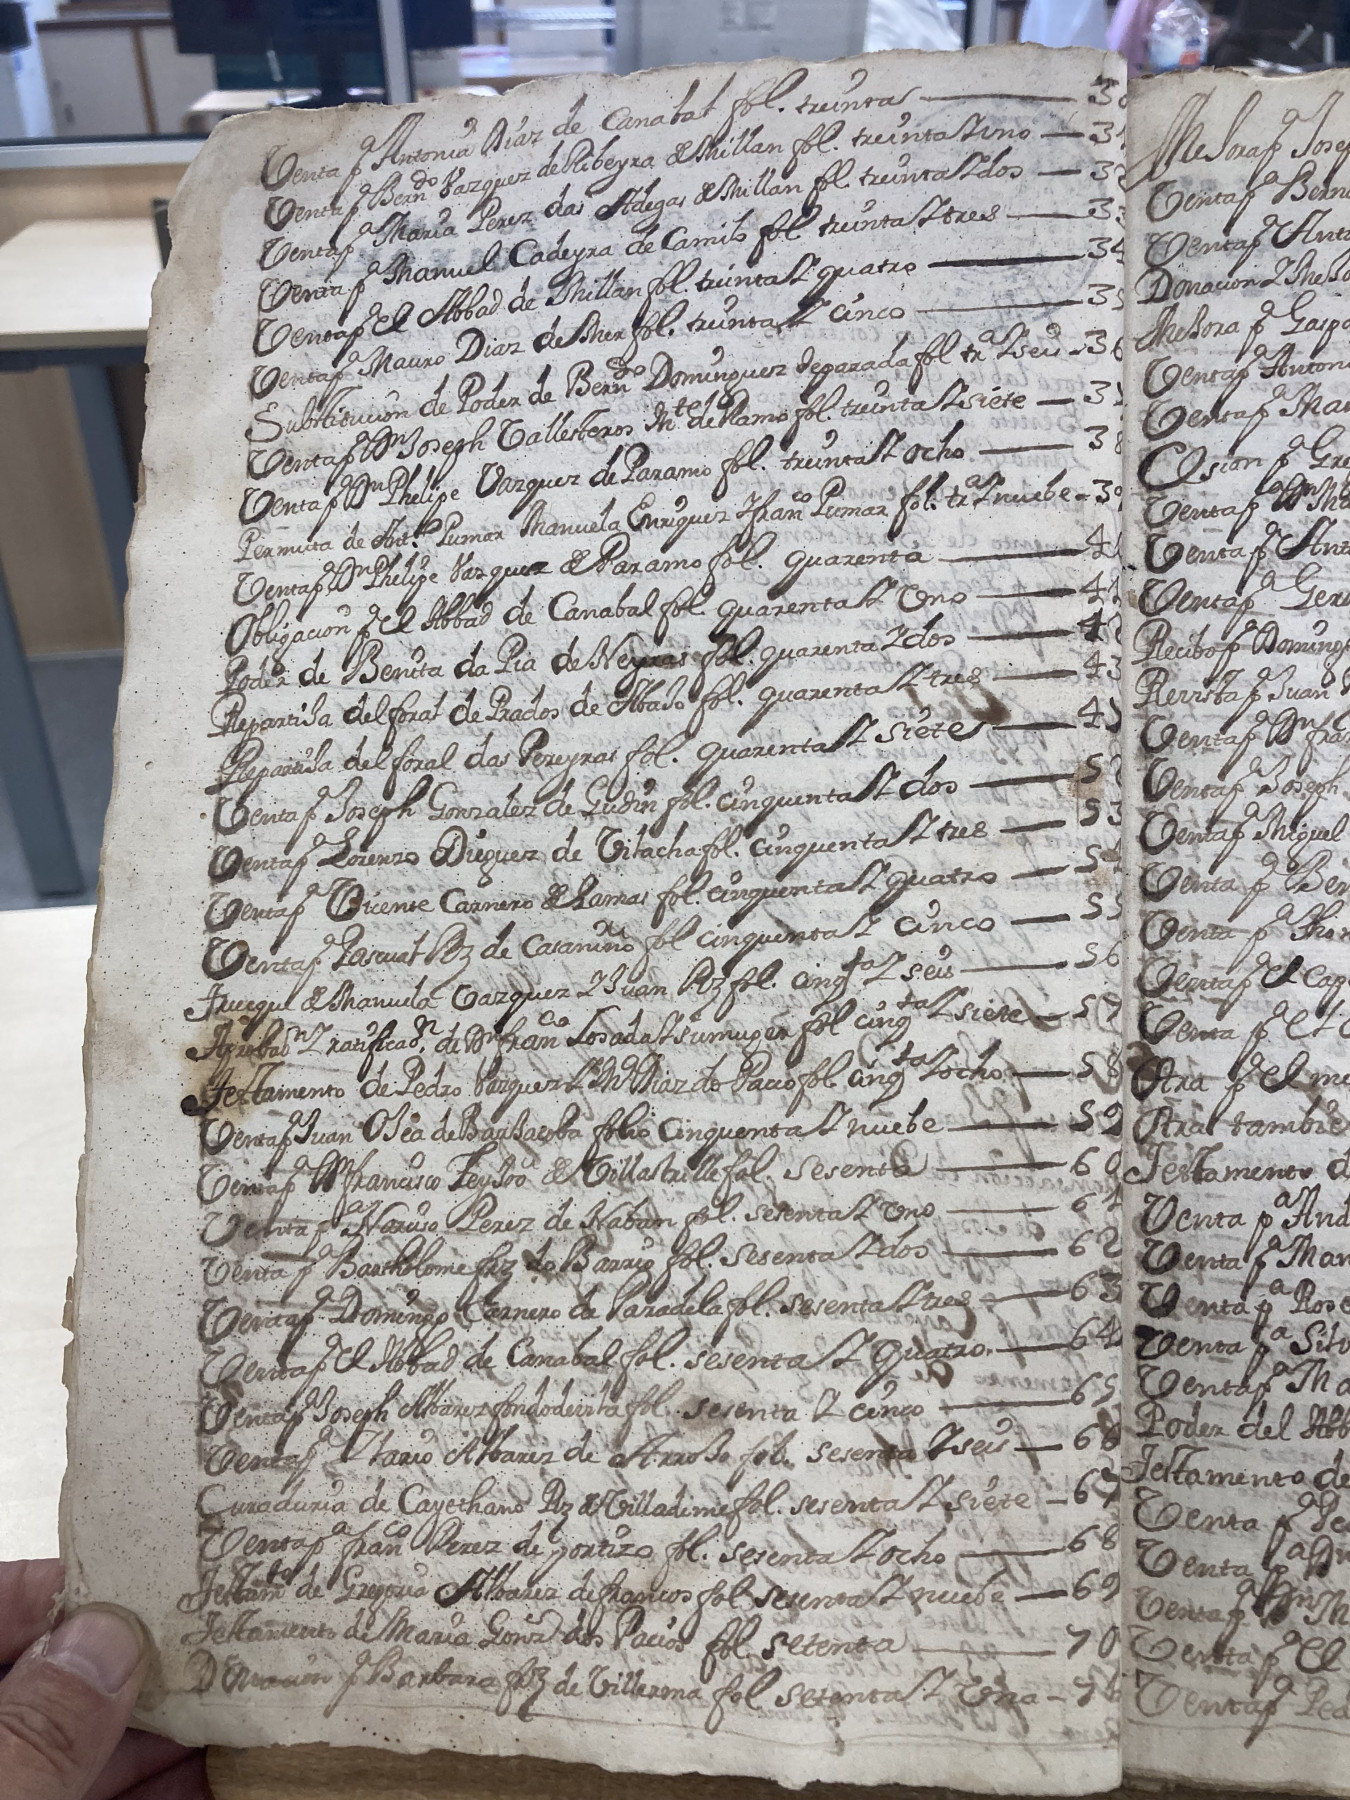 Venta pª Antonia Diaz de Canabal fol. treinta — 30
Venta pª Bernᵈᵒ Vazquez de Ribeyra de Millan fol. treinta Y uno — 31
Venta pª Maria Perez das Adegas de Millan fol. treinta Y dos — 32
Venta pª Manuel Cadeyra de Camilo fol. treinta Y tres — 33
Venta pª el Abbad de Millan fol. treinta Y quatro — 34
Venta pª Mauro Diaz de Mer fol. treinta Y cinco — 35
Substitucion de Poder de Bernᵈᵒ Dominguez de parada fol trª Y seis — 36
Venta pª Dⁿ Joseph Vallesteros de Ramo fol. treinta Y siete — 37
Venta pª Dⁿ Phelipe Vazquez de Paramo fol. treinta Y ocho — 38
Permuta de Antᵒ Pumar Manuela Enriquez Y franᶜᵒ Pumar fol. trª Y nuebe — 39
Venta pª Dⁿ Phelipe Vazquez de Paramo fol. quarenta — 40
Obligacion pª el Abbad de Canabal fol. quarenta Y Uno — 41
Poder de Benita da Pia de Neyras fol. quarenta Y dos — 42
Repartiha del foral de Prados de Abaso fol. quarenta Y tres — 43
Repartiha del foral das Pereyras fol. quarenta Y siete — 47
Venta pª Joseph Gonzalez de Gudin fol. cinquenta Y dos — 52
Venta pª Lorenzo Dieguez de Vilacha fol. cinquenta Y tres — 53
Venta pª Vicente Carnero de Lamas fol. cinquenta Y quatro — 54
Venta pª Pascual Rz de Casanuño fol cinquenta Y cinco — 55
Trueque de Manuela Vazquez Y Juan Rz fol. cinqᵗᵃ Y seis — 56
Aprobaⁿ Y ratificaⁿ de Dⁿ franᶜᵒ Losada Y su muger fol cinqᵗᵃ Y siete — 57
Testamento de Pedro Vazquez Y Mª Diaz do Pacio fol cinqᵗᵃ Y ocho — 58
Venta pª Juan Osea de folio Cinquenta Y nuebe — 59
Venta pª Dⁿ francisco de Villastrille fol. sesenta — 60
Venta pª Narciso Perez de Naban fol. sesenta Y Uno — 61
Venta pª Bartholome frz do Barrio fol. sesenta Y dos — 62
Venta pª Domingo Carnero da Paradela fol. sesenta Y tres — 63
Venta pª el Abbad de Canabal fol. sesenta Y quatro — 64
Venta pª Joseph Albarez fondodevila fol. sesenta Y cinco — 65
Venta pª Ylario Albarez de Arroxo fol. sesenta Y seis — 66
Curaduria de Cayethano Rz de Villadime fol. sesenta Y siete — 67
Venta pª franᶜᵒ Perez de portizo fol. sesenta Y ocho — 68
Testamᵗᵒ de Gregoria Albarez de francos fol sesenta Y nuebe — 69
Testamento de Maria Gonz dos Pacios fol. setenta — 70
Donacion pª Barbara frz de Villerma fol setenta Y Una — 71
Mejora pª Josep
Venta pª Berna
Venta pª Anto
Donacion Y Mejo
Mejora pª Gaspa
Venta pª Antoni
Venta pª Man
Cesion pª Gre
Venta pª Dⁿ Ma
Venta pª Anto
Venta pª Gero
Recibo pª Doming
Revista pª Juan
Venta pª Dⁿ fra
Venta pª Joseph
Venta pª Miguel
Venta pª Ber
Venta pª Thom
Venta pª el Cap
Venta pª el
Otra pª el me
Otra tambie
Testamento d
Venta pª And
Venta pª Man
Venta pª Rose
Venta pª Silv
Venta pª Ma
Poder del Abb
Testamento de
Venta pª Pe
Venta pª
Venta pª Dⁿ M
Venta pª el
Venta pª Ped